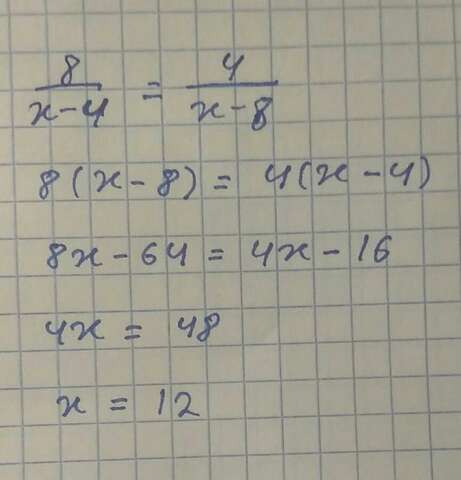 8/(x-4) = 4/(x-8)
8(x-8) = 4(x-4)
8x-64 = 4x-16
4x = 48
x = 12